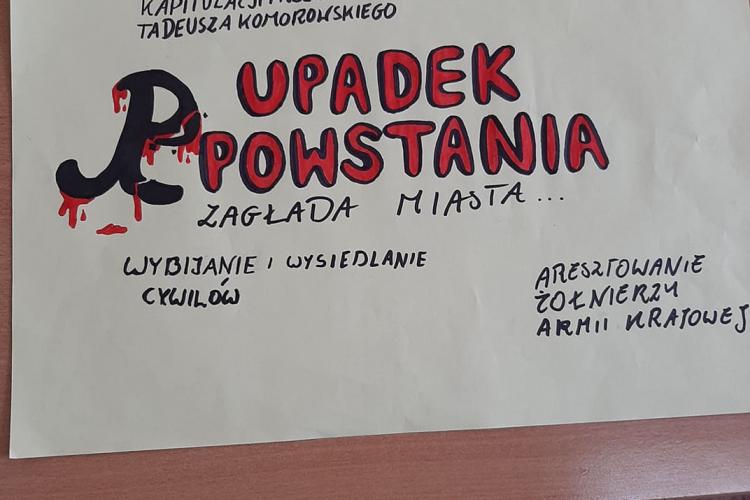 KAPITULACJI
TADEUSZA KOMOROWSKIEGO
UPADEK
POWSTANIA
ZAGŁADA MIASTA...
WYBIJANIE I WYSIEDLANIE
CYWILÓW
ARESZTOWANIE
ŻOŁNIERZY
ARMII KRAJOWEJ